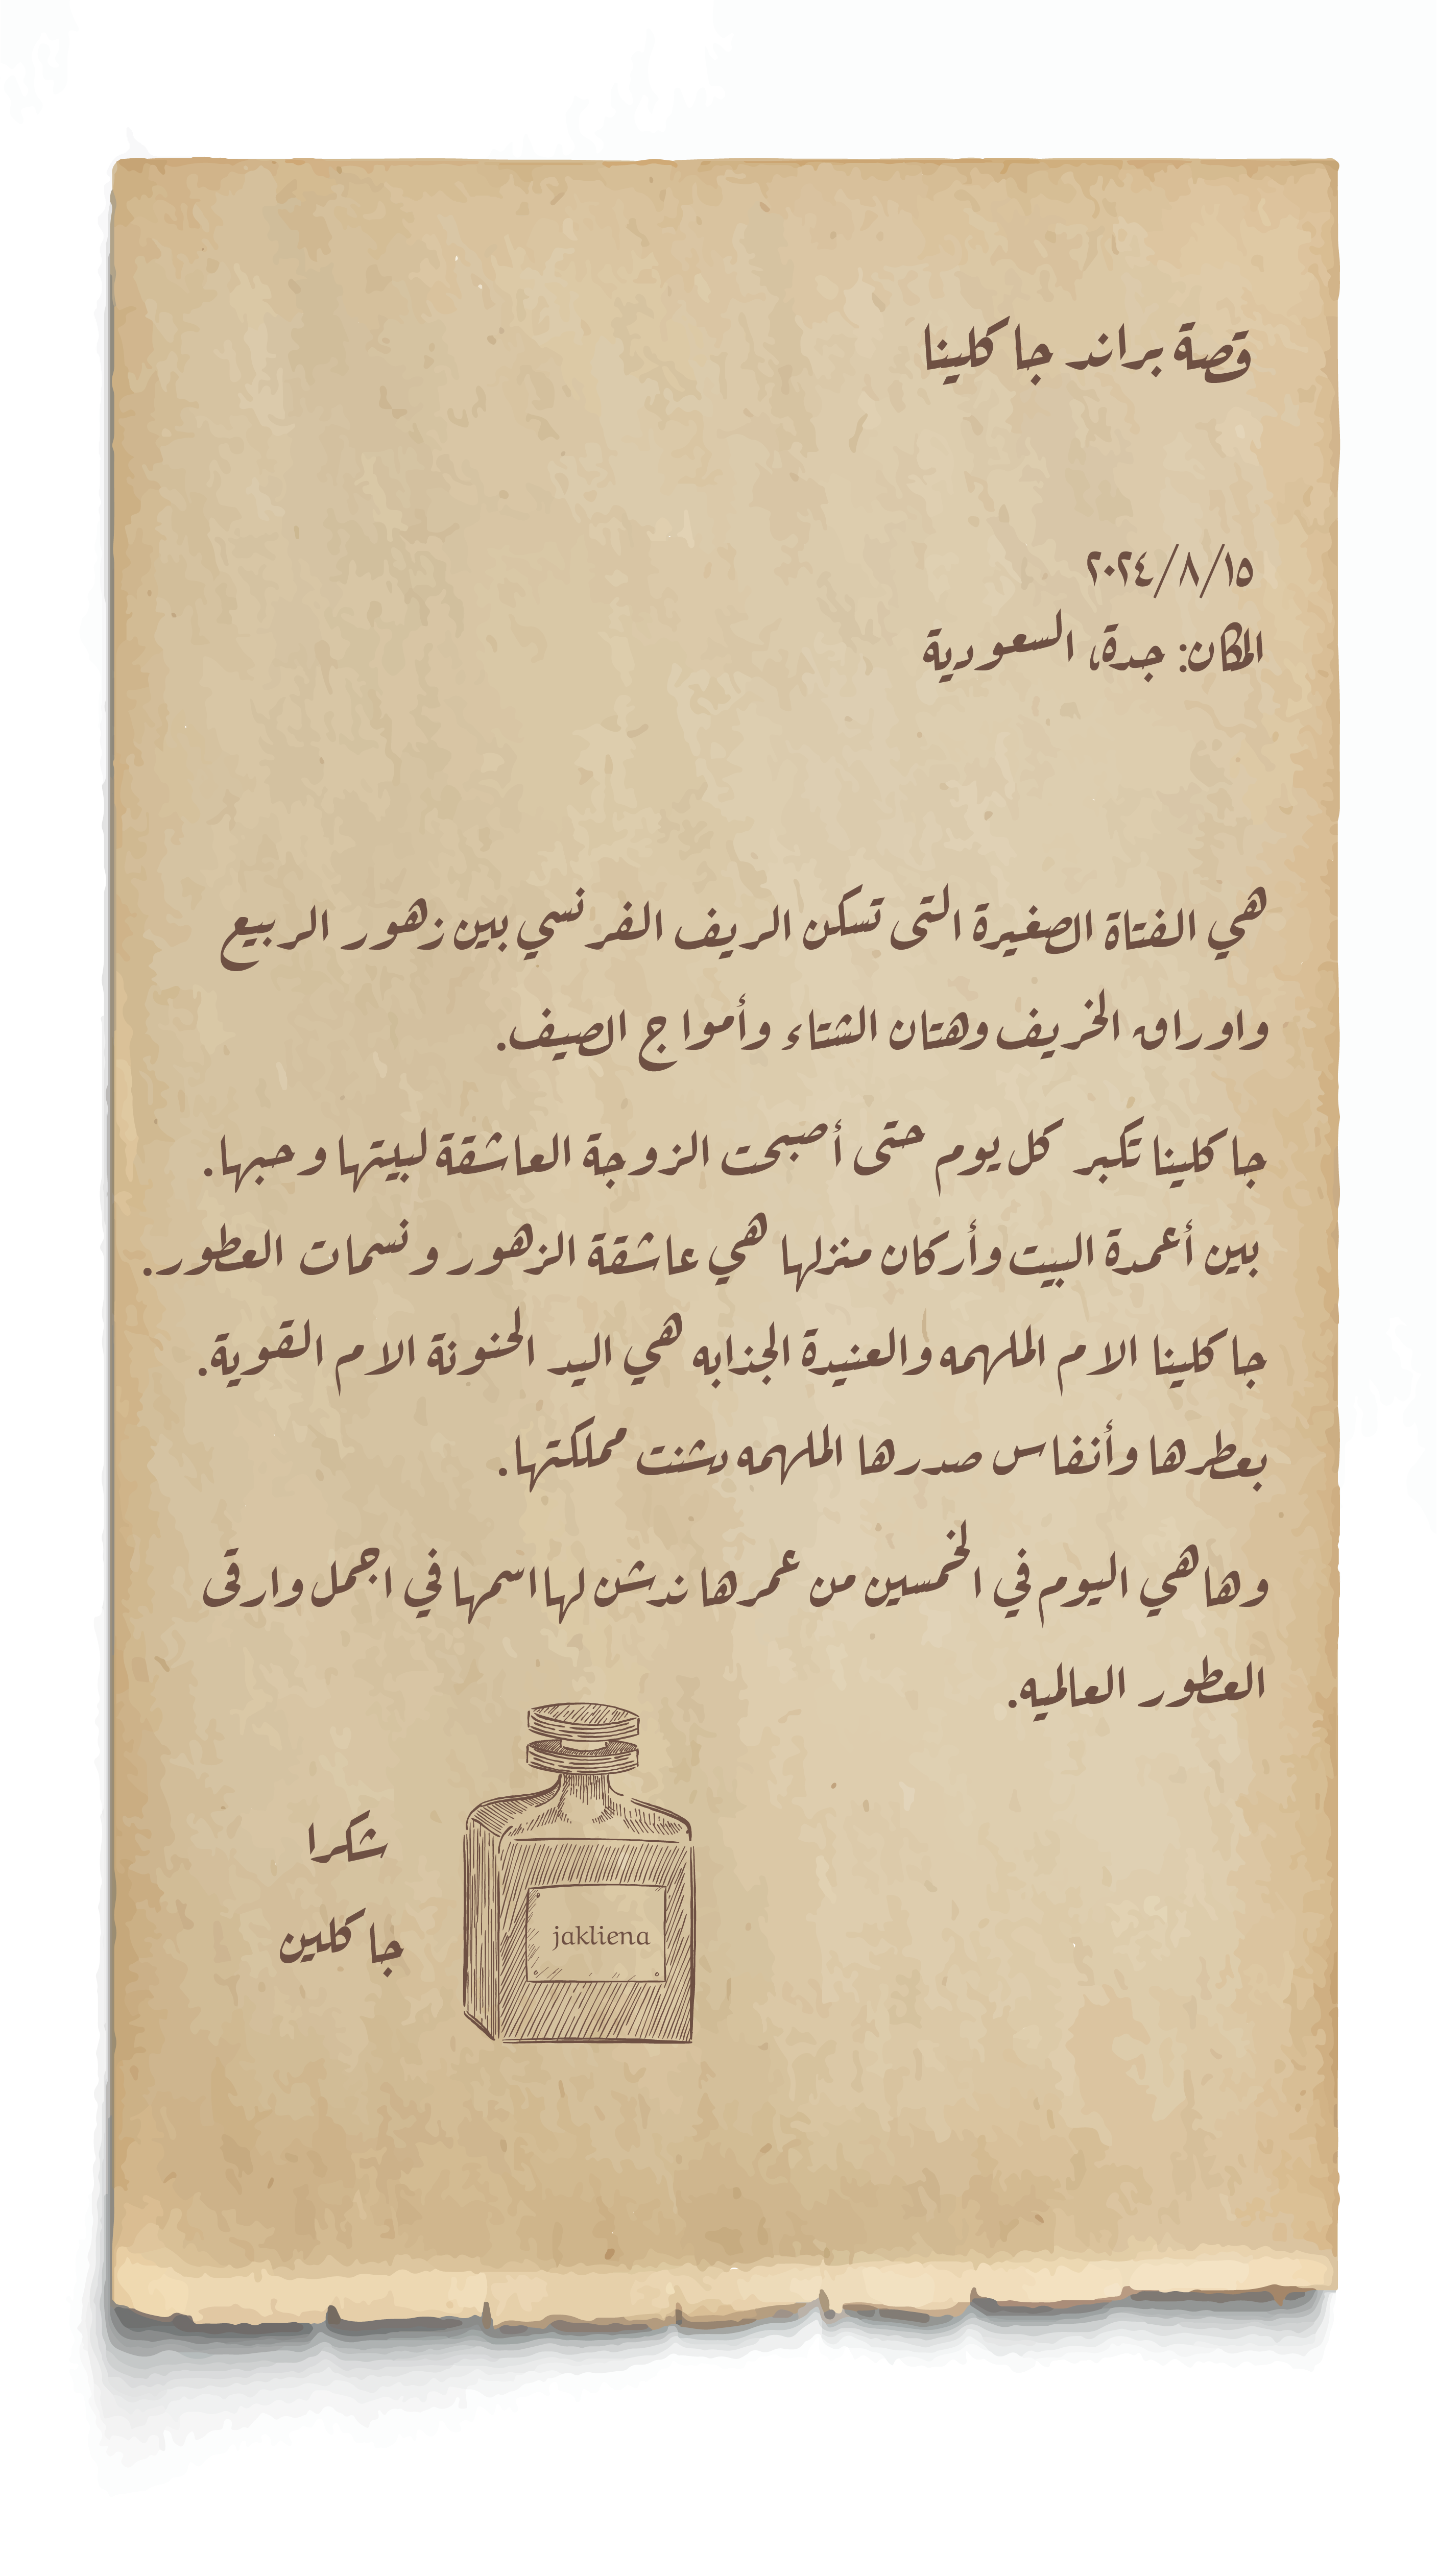 قصة براند جاكلينا
٢٠٢٤/٨/١٥
المكان: جدة، السعودية
هي الفتاة الصغيرة التى تسكن الريف الفرنسي بين زهور الربيع
واوراق الخريف وهتان الشتاء وأمواج الصيف.
جاكلينا تكبر كل يوم حتى أصبحت الزوجة العاشقة لبيتها وحبها.
بين أعمدة البيت وأركان منزلها هي عاشقة الزهور ونسمات العطور.
جاكلينا الام الملهمه والعنيدة الجذابه هي اليد الحنونة الام القوية.
بعطرها وأنفاس صدرها الملهمه دشنت مملكتها.
وهاهي اليوم في الخمسين من عمرها ندشن لها اسمها في اجمل وارقى
العطور العالميه.
شكرا
جاكلين
jakliena